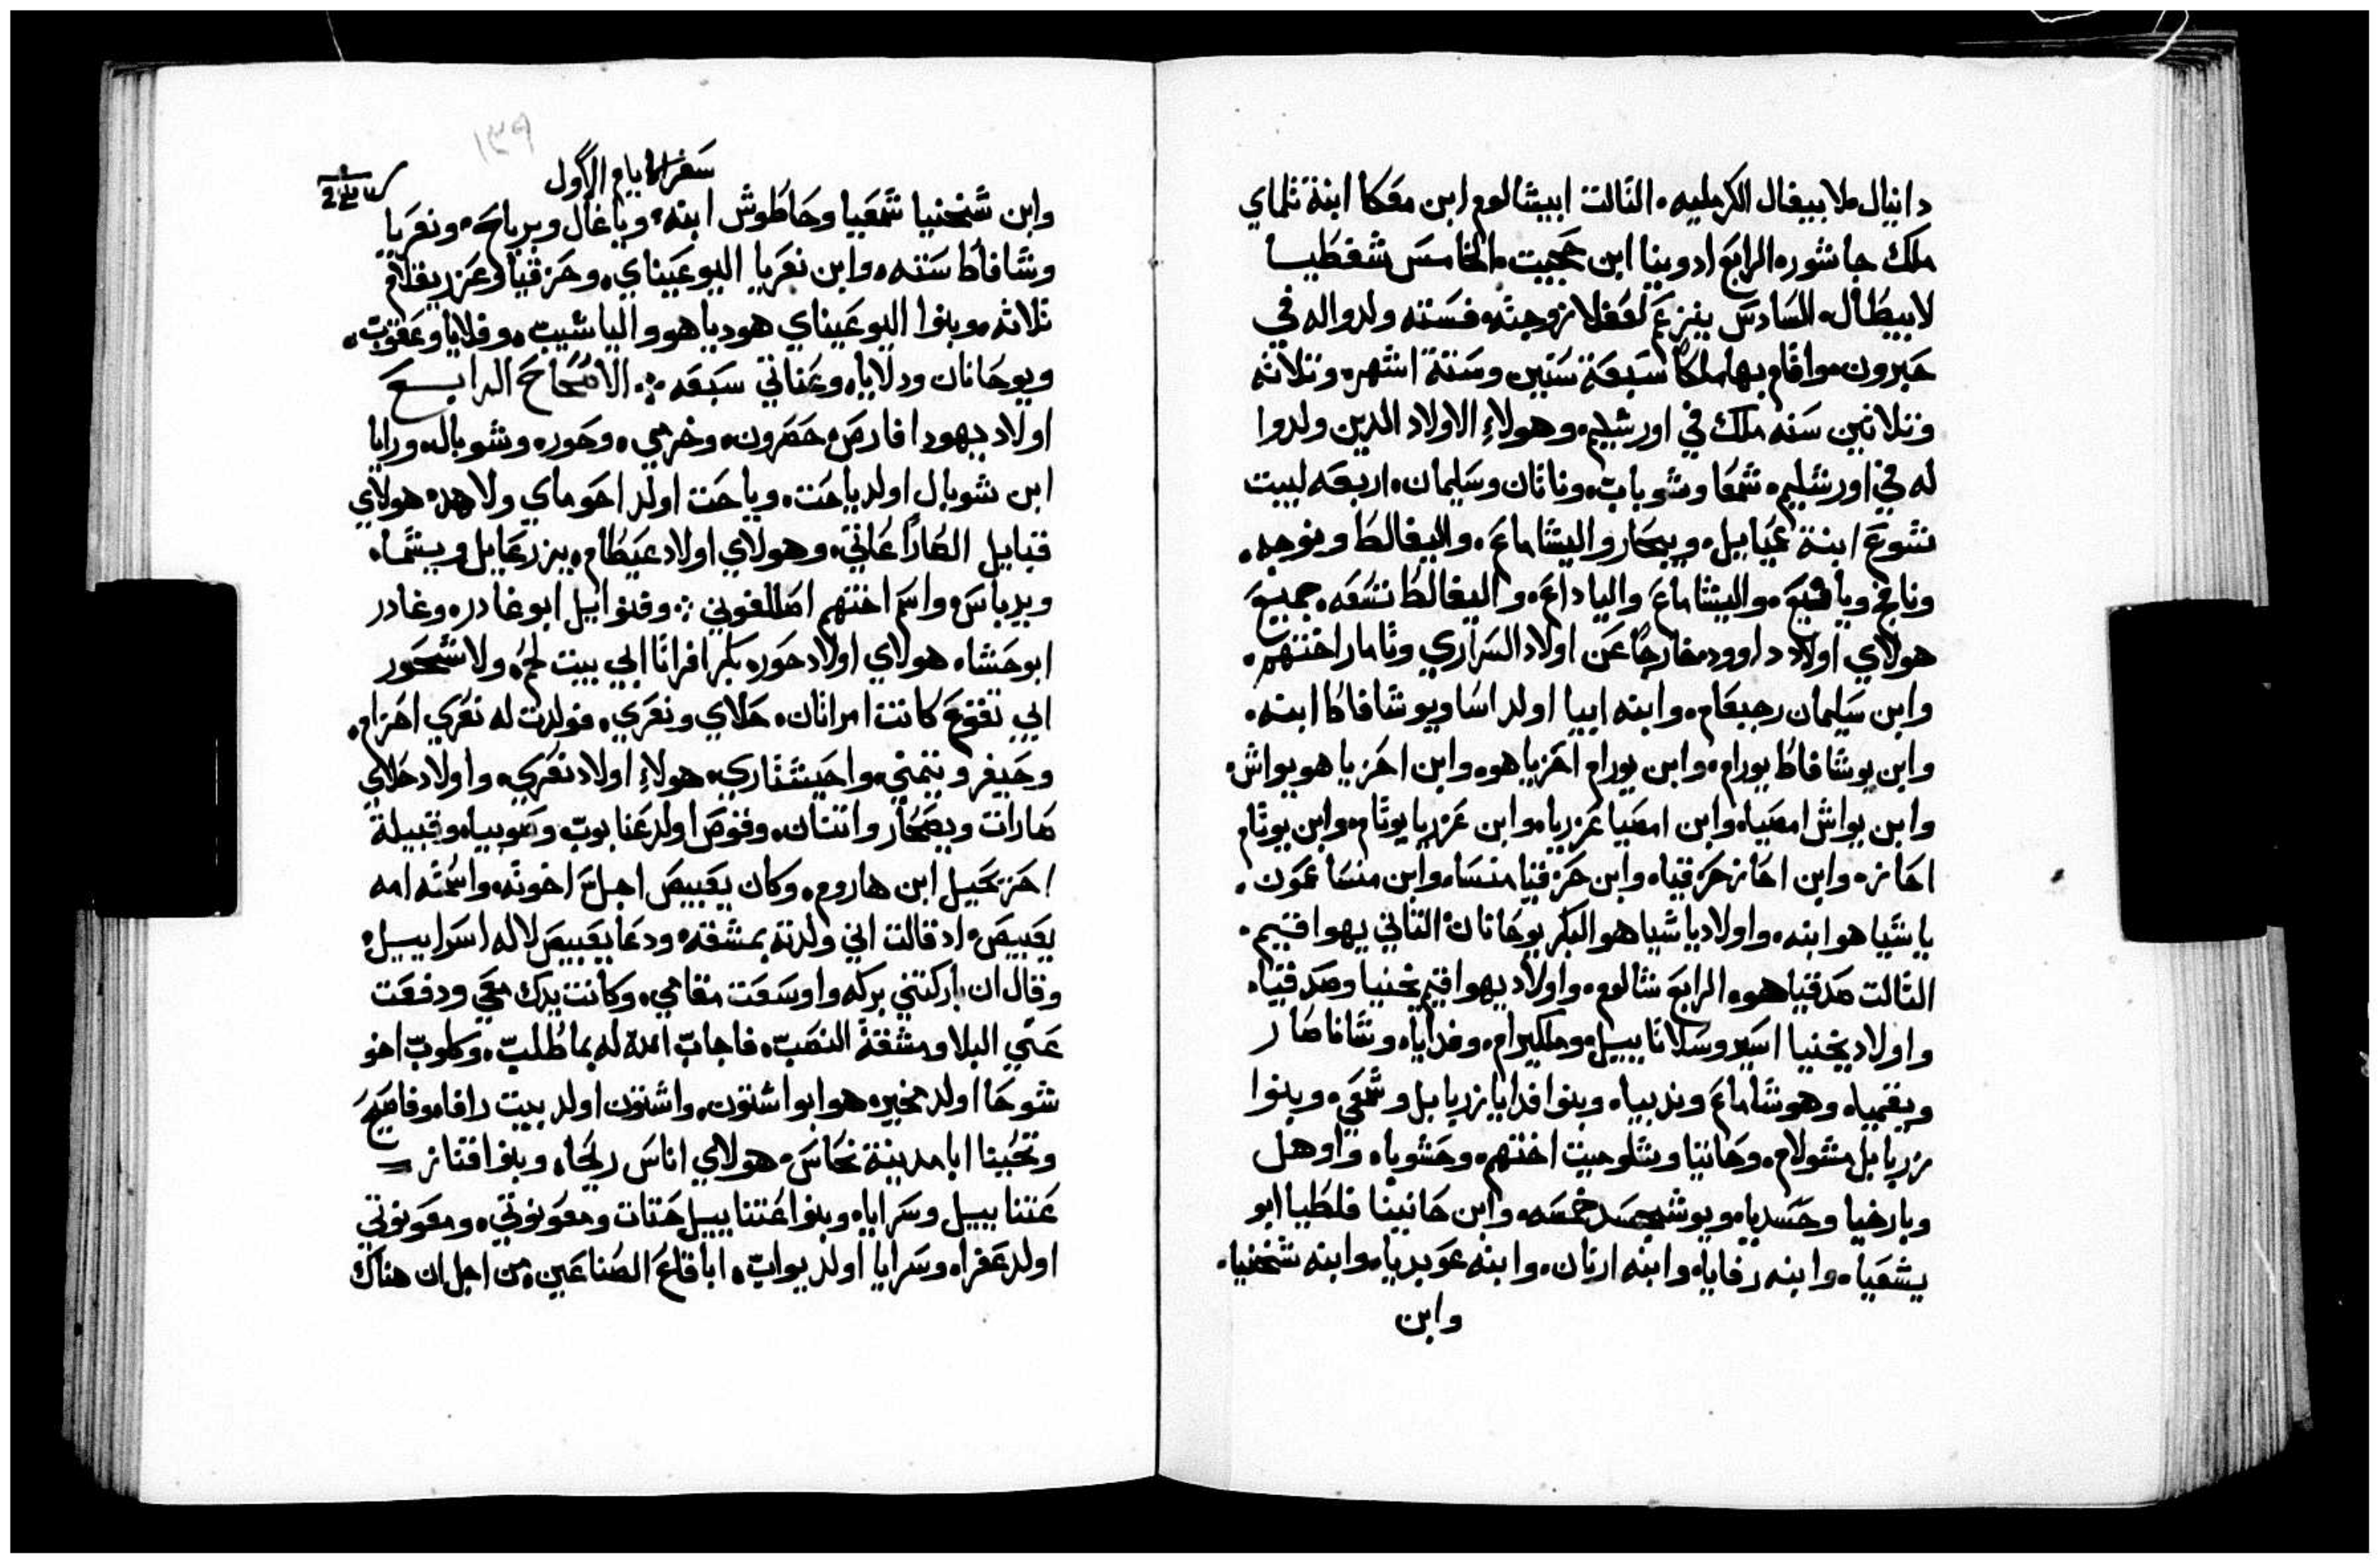 دانيال ملابيغال الكرمليه، التالت ابيشالوم ابن معكا ابنة تلماي
ملك جاشور، الرابع ادوينا ابن حجيت، الخامس شفطيا
لابيطال، السادس يتزعم لعفلا زوجته، فسته ولدوا له في
حبرون، واقام بها ملكا سبعة سنين وستة اشهر، وتلاته
وتلاتين سنه ملك في اورشليم، وهولاءِ الاولاد الدين ولدوا
له في اورشليم، شمعا وشوباب، وناتان وسليمان، اربعه لبيت
شوع ابنة عميايل، ويبحار واليشاماع، واليفالط ونوجه،
ونافج ويافيع، واليشاماع والياداع، واليفالط تسعه، جميع
هولاي اولاد داوود، خارجًا عن اولاد السراري وتامار اختهم،
وابن سليمان رجبعام، وابنه ابيا اولد اسا ويوشافاط ابنه،
وابن يوشافاط يورام، وابن يورام احزياهو، وابن احزياهو يواش،
وابن يواش امصيا، وابن امصيا عزريا، وابن عزريا يوتام، وابن يوتام
احاز، وابن احاز حزقيا، وابن حزقيا منسا، وابن منسا عمون،
ياشياهو ابنه، واولاد ياشياهو البكر يوحانان التاني يهواقيم،
التالت صدقياهو، الرابع شالوم، واولاد يهواقيم يخنيا وصدقيا،
واولاد يخنيا اسير وسلاتاييل، وملكيرام، وفدايا، وشاناصار
ويقميا، وهوشاماع وندبيا، وبنوا فدايا زربابل وشمعي، وبنوا
زربابل مشولام، وحانيا وشلوميت اختهم، وحشوبا، واوهل
وبارخيا وحسديا، ويوشبحسد خمسه، وابن حانينا فلطيا ابو
يشعيا، وابنه رفايا، وابنه ارنان، وابنه عوبديا، وابنه شخنيا،
وابن
سفر الايام الاول
١٣٩
وابن شخنيا شمعيا وحاطوش ابنه، وياغال وبرياح، ونعريا
وشافاط سته، وابن نعريا اليوعيناي، وحزقيا وعزريقام
تلاته، وبنوا اليوعيناي هوديا هو والياشيب، وفلايا وعقوب،
ويوحانان ودلايا، وعناني سبعه، الاصحاح الرابع
اولاد يهودا فارص، حصرون، وخرمي، وحور، وشوبال، ورايا
ابن شوبال اولد ياحت، وياحت اولد احوماي ولاهد، هولاي
قبايل الصارَاعَاتي، وهولاي اولاد عيطام، يزرعايل ويشما،
ويدباس، واسم اختهم اصللفوني، وفنوايل ابو غادر، وغادر
ابو حشا، هولاي اولاد حور، بكر افراتا ابي بيت لحم، ولاشحور
ابي تقوع كانت امراتان، حلاي ونعري، فولدت له نعري احزام،
وحيفر ويتمني، واحيشتاري، هولاءِ اولاد نعري، واولاد حلاي
صارات ويصحار واتنان، وقوص اولد عنابوب وصوبيا، وقبيلة
احرحيل ابن هاروم، وكان يعبيص اجل اخوته، واسمته امه
يعبيص، اد قالت اني ولدته بمشقه، ودعا يعبيص لاله اسراييل،
وقال ان باركتني بركه واوسعت مقامي، وكانت يدك معي ودفعت
عني البلا ومشقة النصب، فاجاب الله له بما طلب، وكلوب اخو
شوحا اولد مخير، هو ابو اشتون، واشتون اولد بيت رافا، وفاصيح
وتحينا ابا مدينة نحاس، هولاي اناس ريحا، وبنوا قناز
عتناييل وسرايا، وبنوا عتناييل حتات ومعونوتي، ومعونوتي
اولد عفرا، وسرايا اولد يواب، ابا قاع الصناعين، من اجل ان هناك